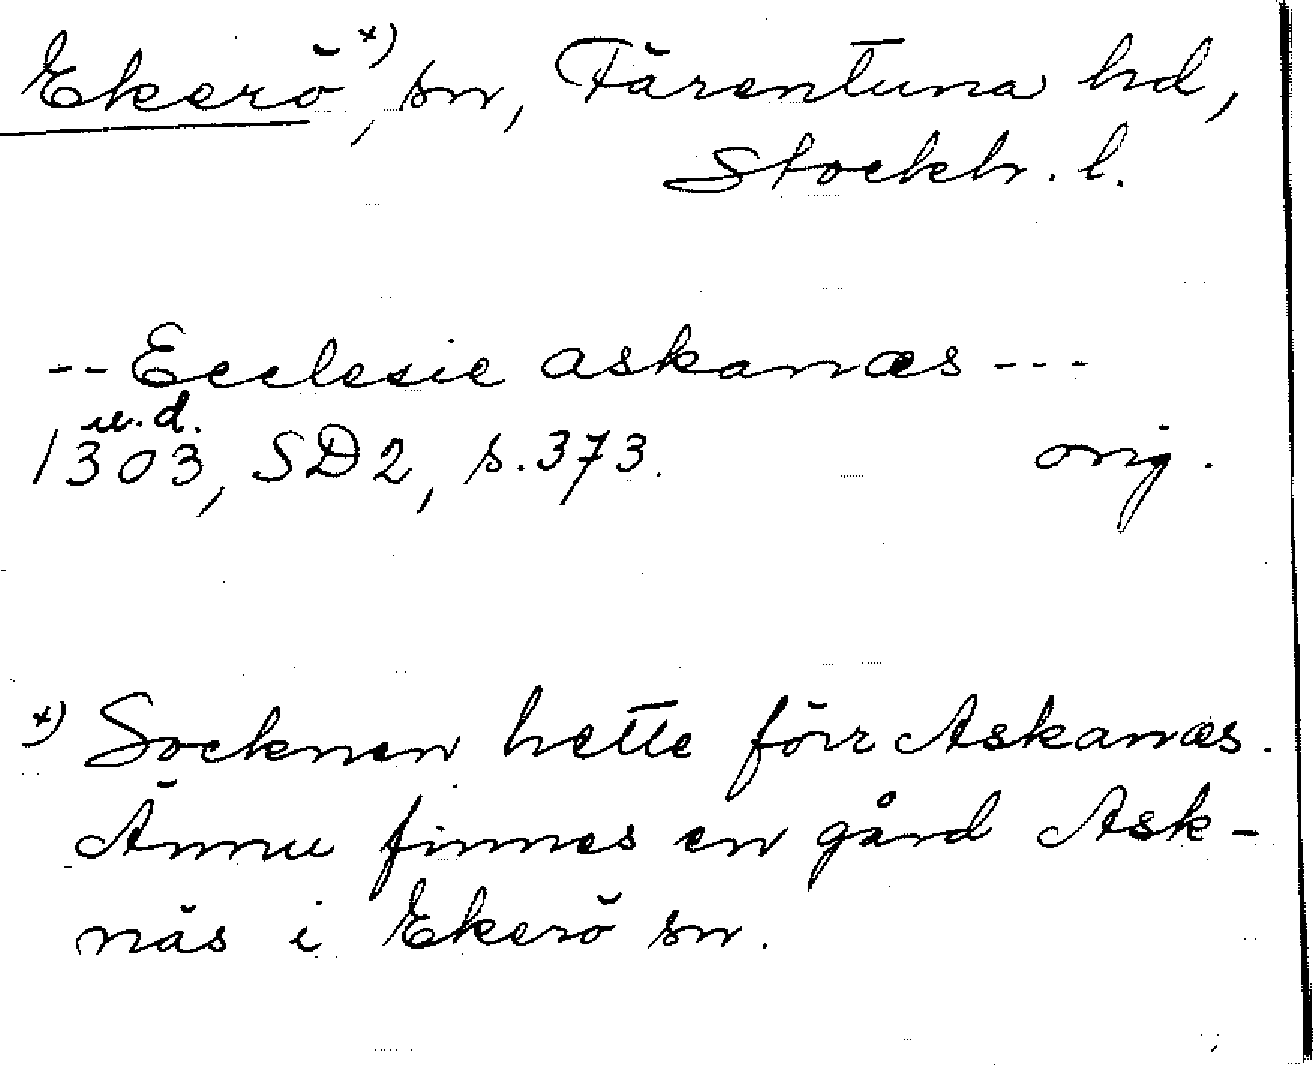 Ekerö*), sn, Färentuna hd,
Stockh. l.
-- Ecclesie askanæs ---
u.d.
1303, SD2, s. 373. orig.
*) Socknen hette förr Askanæs.
Ännu finnes en gård Ask-
näs i Ekerö sn.